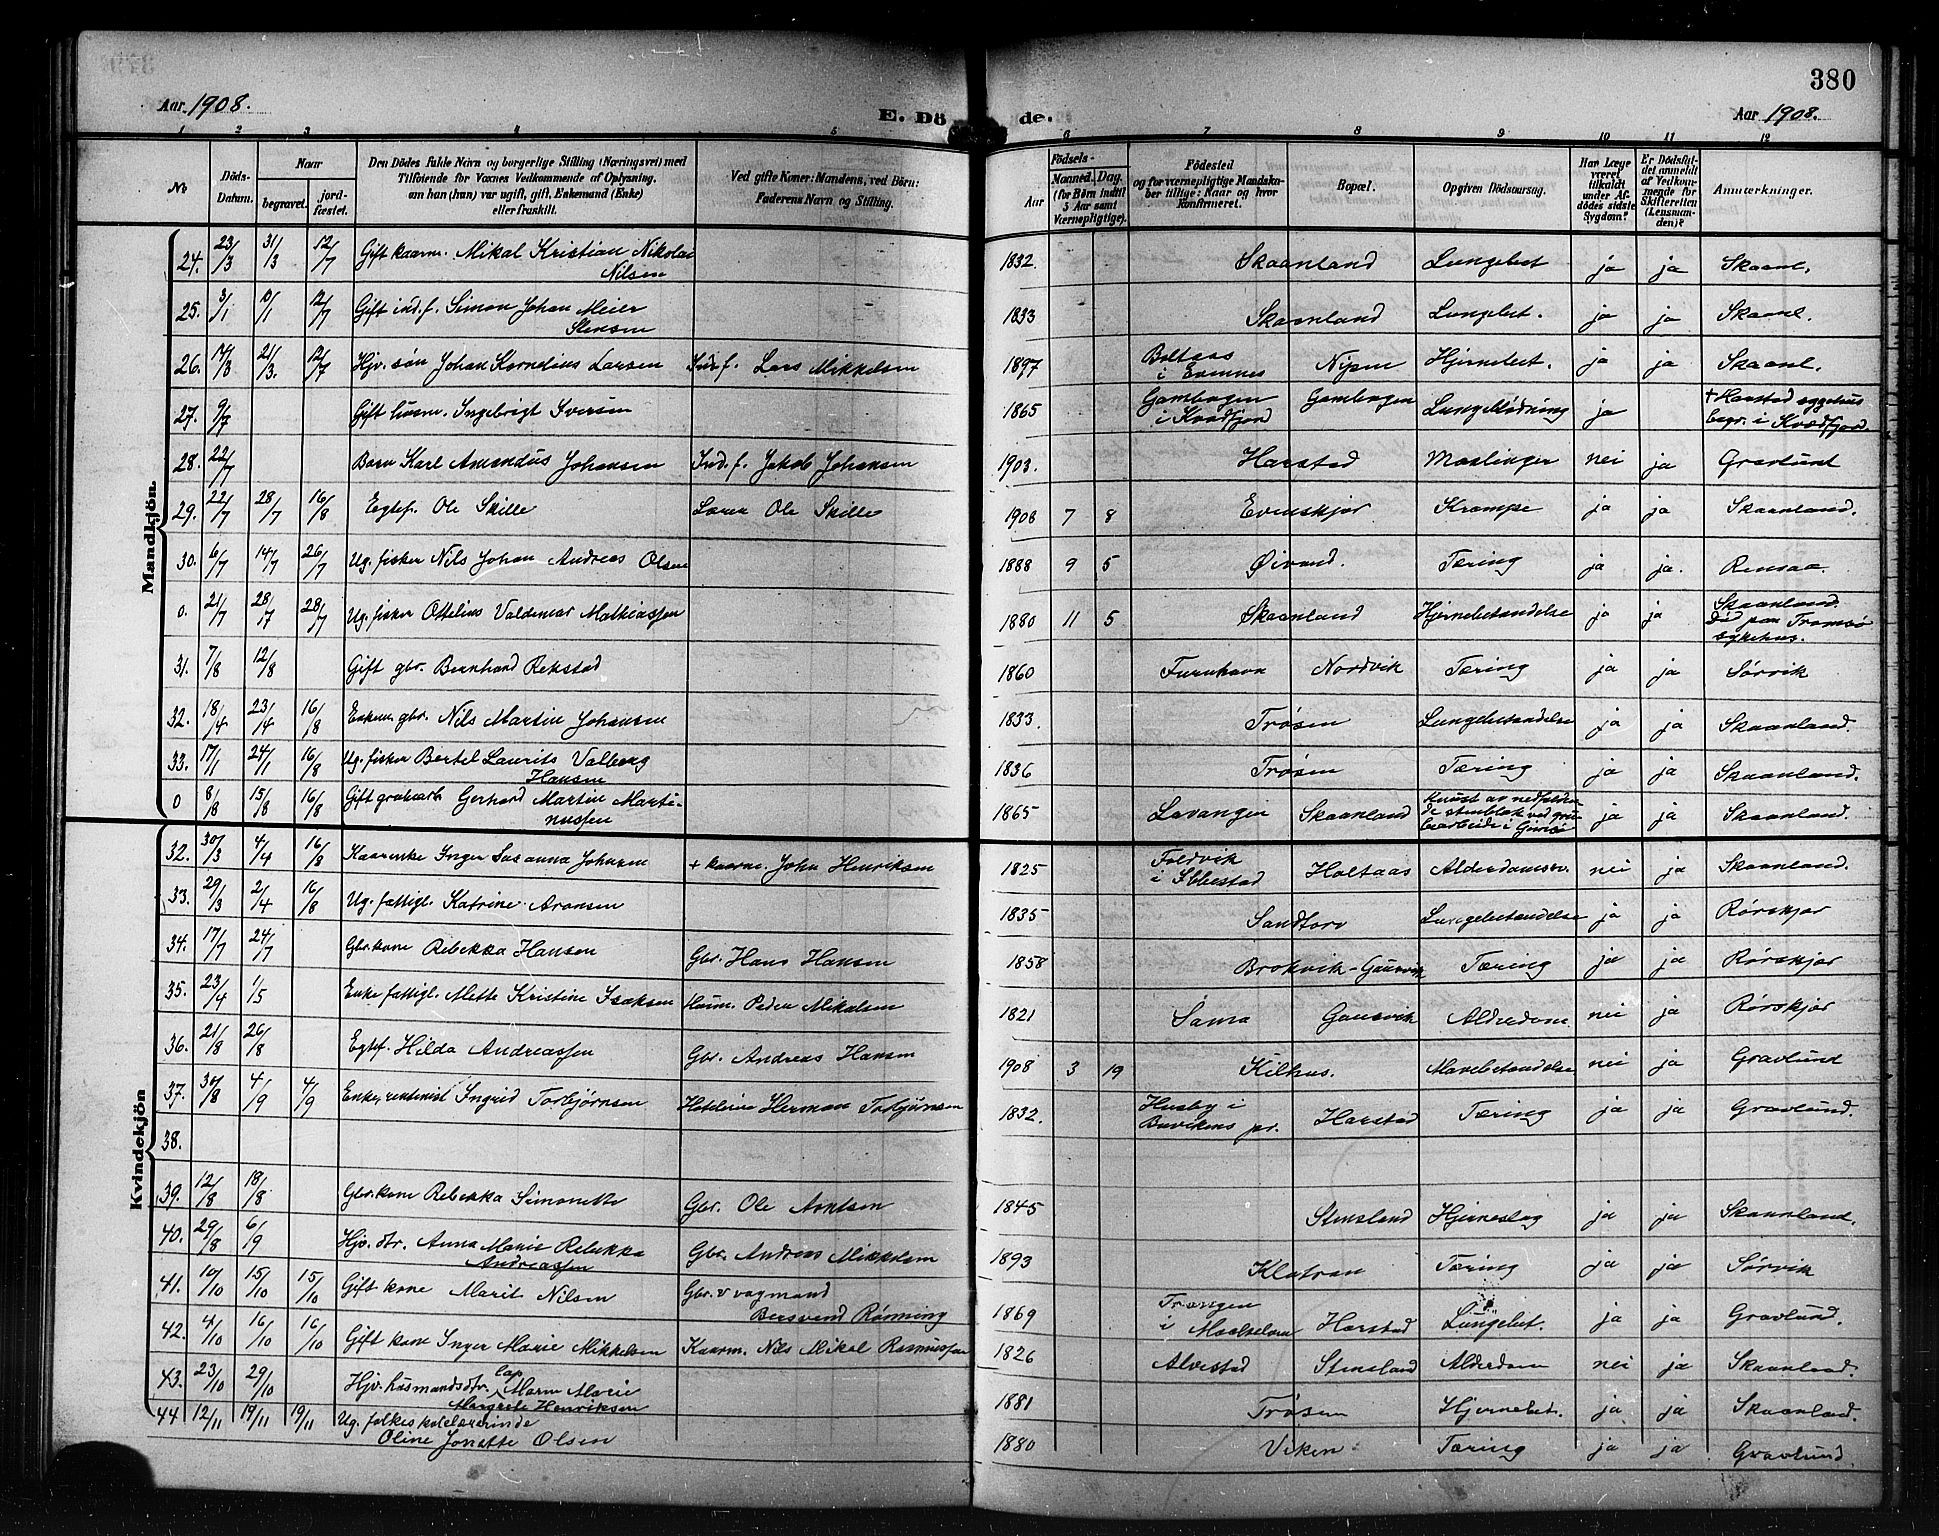 380
Aar 1908.
E. Döde.
Aar 1908.
1 2 3 4 5 6 7 8 9 10 11 12
No
Döds-Datum.
Naar
begravet.
jord-fæstet.
Den Dödes fulde Navn og borgerlige Stilling (Næringsvei) med
Tilföiende for Voxnes Vedkommende af Oplysning,
om han (hun) var ugift, gift, Enkemand (Enke)
eller fraskilt.
Ved gifte Koner: Mandens, ved Börn:
Faderens Navn og Stilling.
Födsels-
Aar
Maaned. Dag.
(for Börn indtil
5 Aar samt
Værnepligtige).
Födested
og for værnepligtige Mandskaber tillige: Naar og hvor
Konfirmeret.
Bopæl.
Opgiven Dödsaarsag.
Har Læge
været
tilkaldt
under Afdödes sidste
Sygdom?
Er Dödsfaldet anmeldt
af Vedkommende for
Skifteretten
(Lensmanden)?
Anmærkninger.
Mandkjön.
24. 23/3 31/3 12/7 Gift kaarm. Mikal Kristian Nikolai Nilsen 1832. Skaanland Lungebet ja ja Skaanl.
25. 3/1 10/1 12/7 Gift ind.f. Simon Johan Meier Stensen 1833 Skaanland Lungebet. ja ja Skaanl.
26. 14/3 21/3. 12/7 Hjv. søn Johan Kornelius Larsen Ind.f. Lars Mikkelsen 1897 Boltaas i Evennes Nipen Hjernebet. ja ja Skaanl.
27. 9/7 Gift husm. Ingebrigt Iversen 1865 Gambogen i Kvædfjord Gambogen Lungeblødning ja + Harstad sygehus begr. i Kvædfjord.
28. 22/7 Barn Karl Amandus Johansen Ind.f. Jakob Johansen 1903. Harstad Meslinger nei ja Gravlund
29. 22/7 28/7 16/8 Egtef. Ole Skille Lærer Ole Skille 1906 7 8 Evenskjer Krampe ja ja Skaanland.
30. 6/7 14/7 26/7 Ug. fisker Nils Johan Andreas Olsen 1888 9 5 Øivand. Tæring ja ja. Rensaa.
0. 21/7 28/7 28/7 Ug. fisker Ottelius Valdemar Mathiassen 1880 11 5 Skaanland Hjernebetændelse ja ja Skaanland. Død paa Tromsø sykehus.
31. 7/8 12/8 Gift gbr. Bernhard Rekstad 1860 Furuhavn Nordvik Tæring ja ja Sørvik
32. 18/4 23/4 16/8 Enkem. gbr. Nils Martin Johansen 1833. Trøsen Lungebetændelse ja ja Skaanland.
33. 17/1 24/1 16/8 Ug. fisker Bertel Laurits Valberg Hansen 1836 Trøsen Tæring ja ja Skaanland.
0 8/8 15/8 16/8 Gift grubearb. Gerhard Martin Martinussen 1865 Lavangen Skaanland Knust av nedfaldende stenblok ved grubearbeide i Gimsø ja ja Skaanland.
Kvindekjön
32. 30/3 4/4 16/8 Kaarenke Inger Susanna Johnsen + kaarm. John Henriksen 1825 Foldvik i Ibbestad Holtaas Alderdomssv. nei ja Skaanland.
33. 29/3 2/4 16/8 Ug. fattigl. Katrine Aronsen 1835 Sandtorv Lungebetændelse ja ja Rørskjør
34. 17/7 24/7 Gbr.kone Rebekka Hansen Gbr. Hans Hansen 1858 Brokvik-Gausvik Tæring ja ja Rørskjør
35. 23/4 1/5 Enke fattigl. Mette Kristine Isaksen Husm. Peder Mikalsen 1821 Sama Gausvik Alderdom nei ja Rørskjør
36. 21/8 26/8 Egtef. Hilda Andreassen Gbr. Andreas Hansen 1908 3 19 Kilhus. Mavebetændelse nei ja Gravlund
37. 30/8 4/9 4/9 Enke, rentenist Ingrid Torbjørnsen Hoteleier Herman Torbjørnsen 1832. Husby i Buvikens pr. Harstad Tæring ja ja Gravlund.
38.
39. 12/8 18/8 Gbr.kone Rebekka Simonette Gbr. Ole Arntsen 1845 Stensland Hjerneslag ja ja Skaanland.
40. 29/8 6/9 Hjv. dtr. Anna Marie Rebekka Andreassen Gbr. Andreas Mikkelsen 1893 Klatran Tæring ja ja Sørvik
41. 10/10 15/10 15/10 Gift kone Marit Nilsen Gbr. & vognmand Bersvend Rønning 1869 Trangen i Maalselven Harstad Lungebet. ja ja Gravlund.
42. 4/10 16/10 16/10 Gift kone Inger Marie Mikkelsen Kaarm. Nils Mikal Rasmussen 1826 Alvestad Stensland Alderdom nei ja Skaanland.
43. 23/10 29/10 Hjv. husmandsdtr. Lap Maren Marie Margrete Henriksen 1881 Trøsen Hjernebet. ja ja Skaanland.
44 12/11 19/11 19/11 Ug. folkeskolelærerinde Oline Jonette Olsen 1880 Viken Tæring ja ja Gravlund.